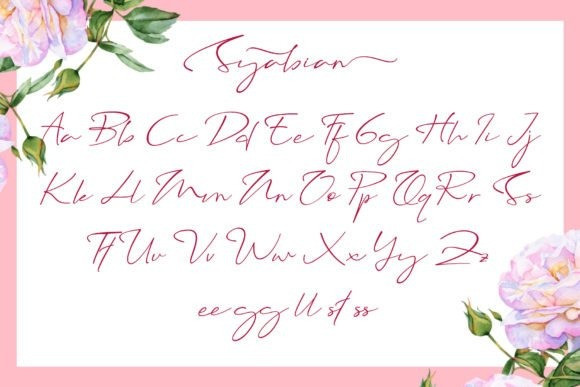 Syabian
Aa Bb Cc Dd Ee Ff Gg Hh Ii Jj
Kk Ll Mm Nn Oo Pp Qq Rr Ss
Tt Uu Vv Ww Xx Yy Zz
ee gg ll st ss